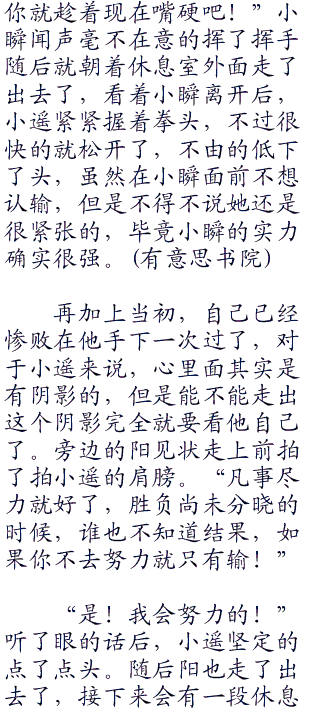 你就趁着现在嘴硬吧！”小
瞬闻声毫不在意的挥了挥手
随后就朝着休息室外面走了
出去了，看着小瞬离开后，
小遥紧紧握着拳头，不过很
快的就松开了，不由的低下
了头，虽然在小瞬面前不想
认输，但是不得不说她还是
很紧张的，毕竟小瞬的实力
确实很强。(有意思书院)
再加上当初，自己已经
惨败在他手下一次过了，对
于小遥来说，心里面其实是
有阴影的，但是能不能走出
这个阴影完全就要看他自己
了。旁边的阳见状走上前拍
了拍小遥的肩膀。“凡事尽
力就好了，胜负尚未分晓的
时候，谁也不知道结果，如
果你不去努力就只有输！”
“是！我会努力的！”
听了眼的话后，小遥坚定的
点了点头。随后阳也走了出
去了，接下来会有一段休息